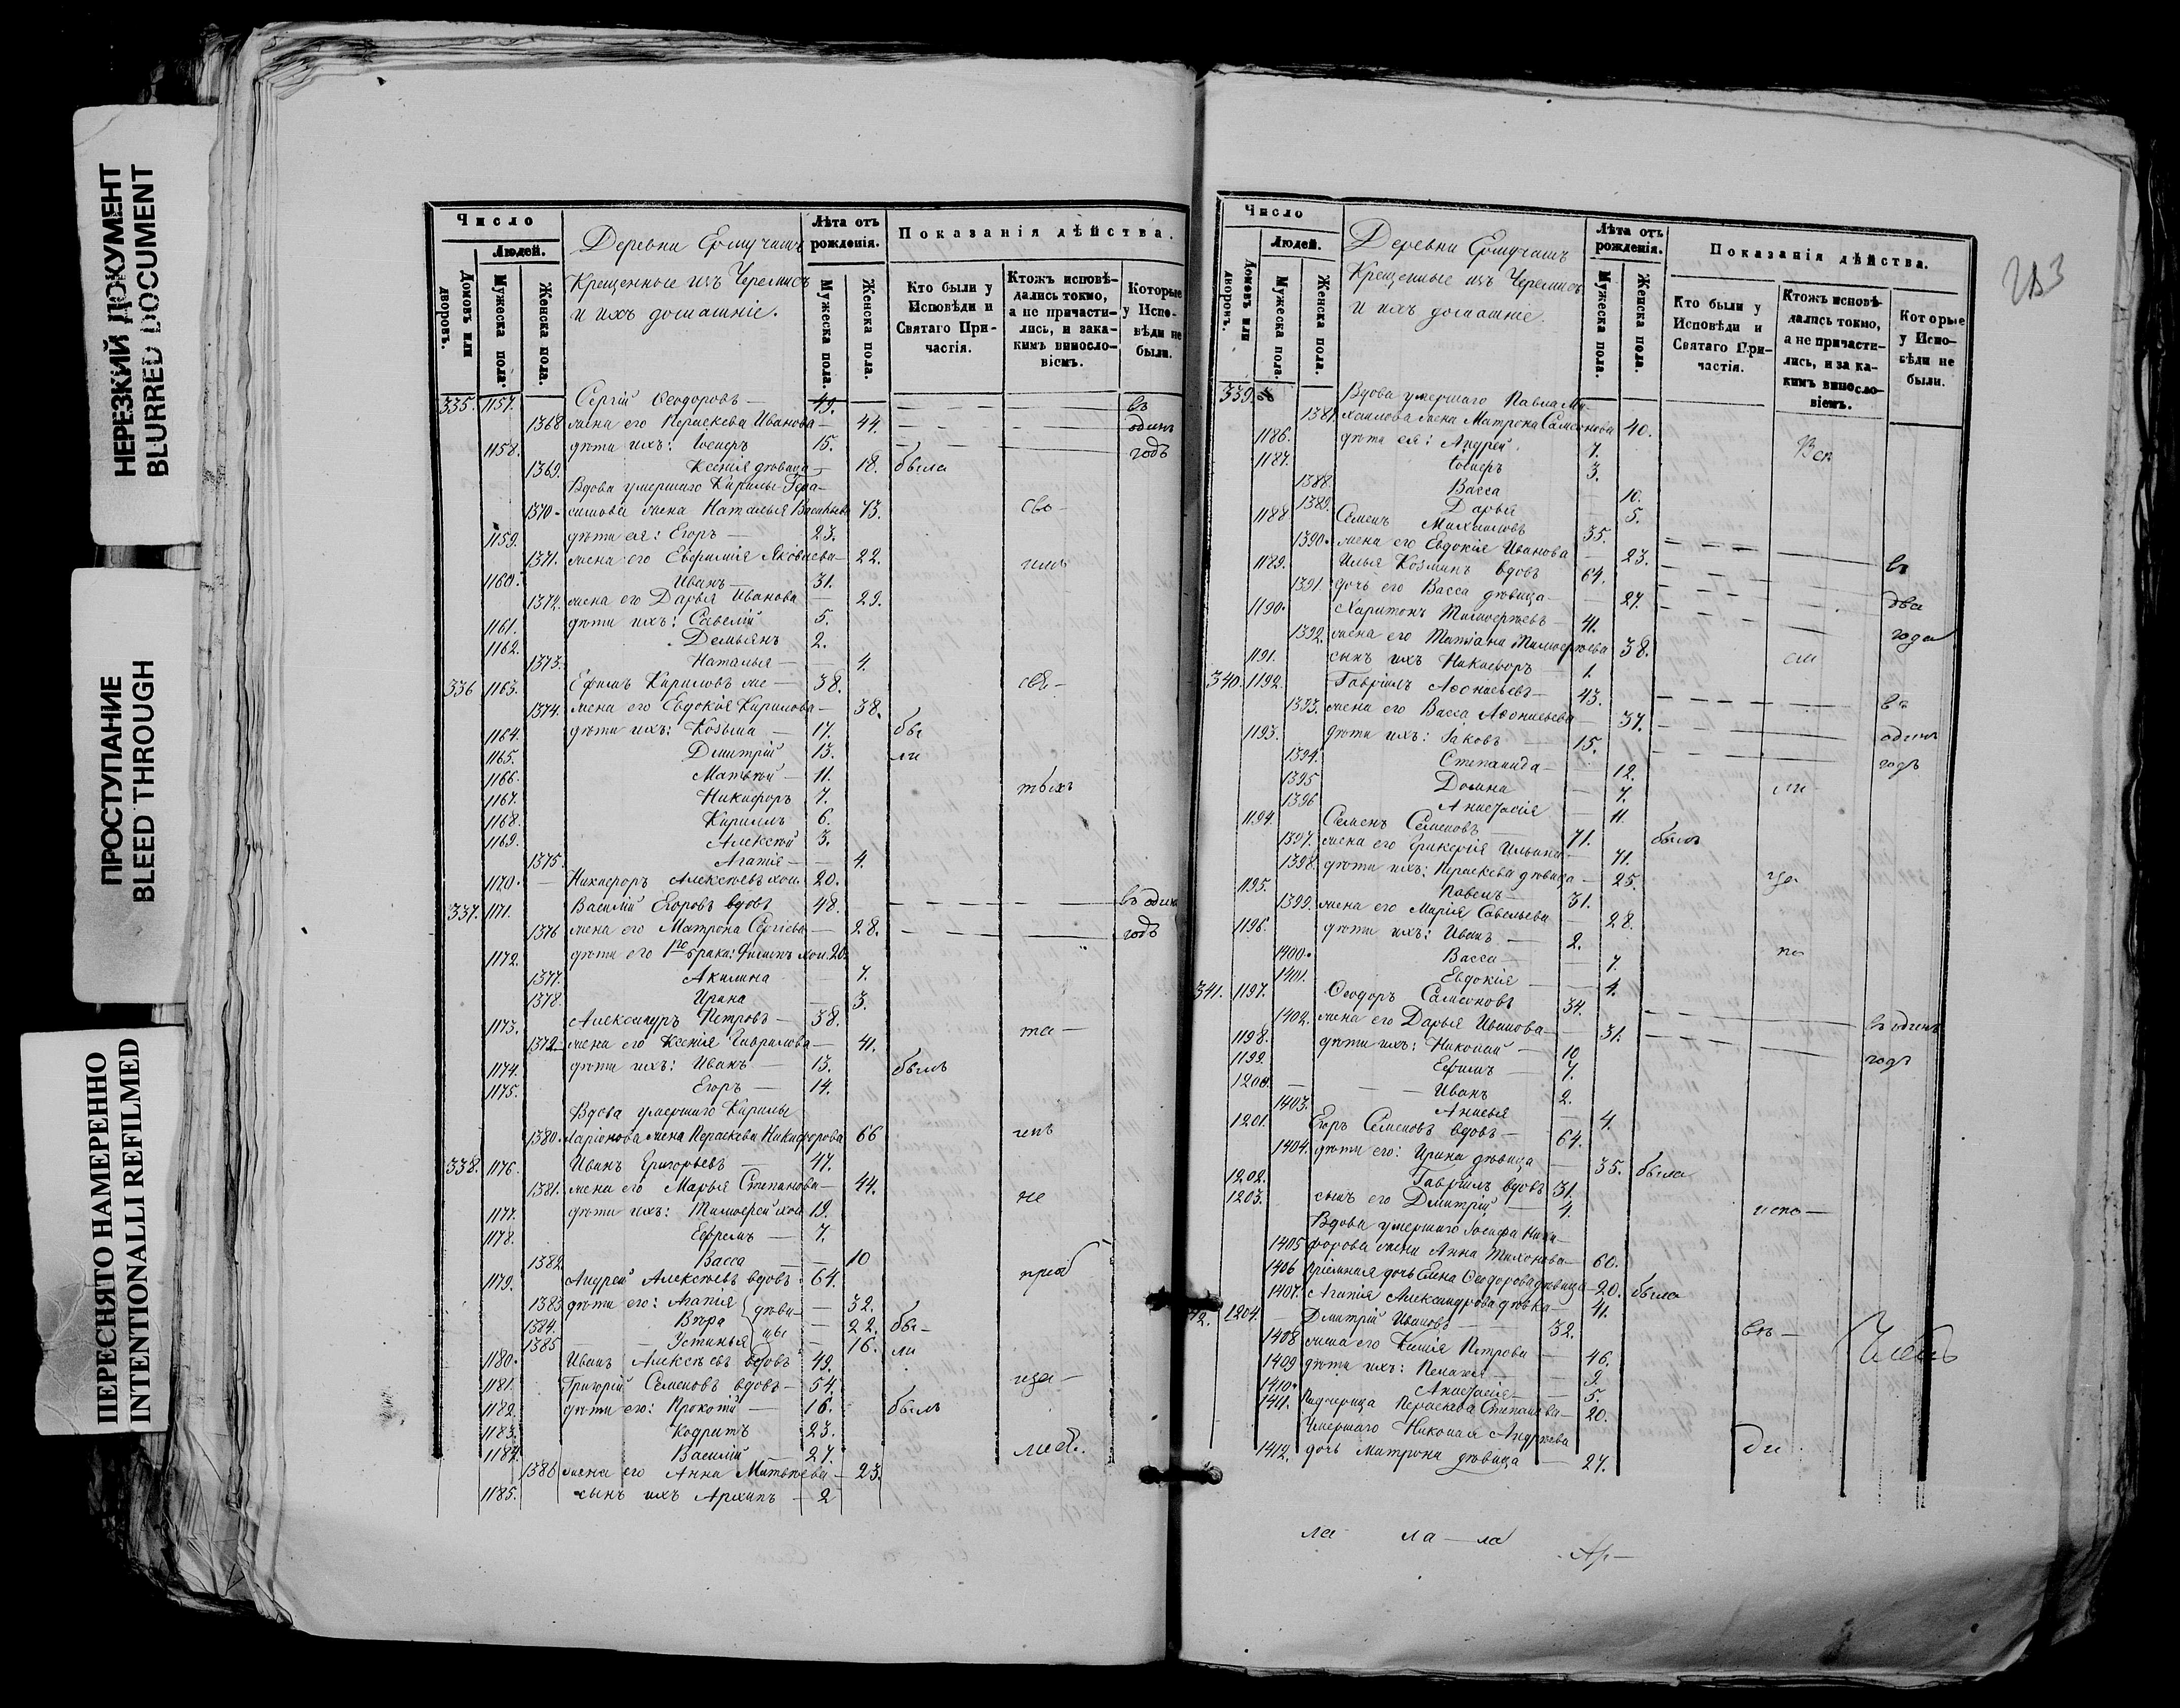 НЕРЕЗКИЙ ДОКУМЕНТ
BLURRED DOCUMENT
ПРОСТУПАНИЕ
BLEED THROUGH
ПЕРЕСНЯТО НАМЕРЕННО
INTENTIONALLI REFILMED
Число
Людей.
Домовъ или дворовъ.
Мужеска пола.
Женска пола.
Деревни Ермучашъ
Крещенные изъ Черемисъ
и ихъ домашніе.
Лѣта отъ рожденія.
Мужеска пола.
Женска пола.
Показанія дѣйства.
Кто были у Исповѣди и Святаго Причастія.
Ктожъ исповѣдались токмо, а не причастились, и за какимъ винословіемъ.
Которые у Исповѣди не были.
335. 1157. Сергій Ѳеодоровъ — 49. въ
1368 жена его Параскева Иванова — 44. одинъ
1158. дѣти ихъ: Іосифъ 15. годъ
1369. Ксенія дѣвица — 18. была
Вдова умершаго Кирилы Гера-
1370. симова жена Наталья Васильева 73. сво-
1159. дѣти ея: Егоръ — 23.
1371. жена его Евфимія Яковлева — 22.
1160. Иванъ — 31.
1372. жена его Дарья Иванова — 29.
1161. дѣти ихъ: Савелій 5.
1162. Демьянъ 2.
1373. Наталья — 4.
336 1163. Ефимъ Кириловъ 38. свя-
1374. жена его Евдокія Кирилова — 38.
1164. дѣти ихъ: Козьма — 17. бы
1165. Дмитрій 13. ли
1166. Матвѣй — 11.
1167. Никифоръ 7. тыхъ
1168. Кириллъ 6.
1169. Алексѣй 3.
1375. Агапія — 4.
1170. Никифоръ Алексѣевъ хол. 20.
337. 1171. Василій Егоровъ вдовъ 48. въ одинъ
1376 жена его Матрона Сергіева — 28. годъ
1172. дѣти его 1го брака: Филипъ хол. 20.
1377. Акилина 7.
1378. Ирина 3.
1173. Александръ Петровъ — 38.
1379. жена его Ксенія Гаврилова — 41. та-
1174. дѣти ихъ: Иванъ — 13. былъ
1175. Егоръ — 14.
Вдова умершаго Кирилы
1380. Ларіонова жена Параскева Никифорова 66
338. 1176. Иванъ Григорьевъ — 47.
1381. жена его Марья Степанова — 44. не
1177. дѣти ихъ: Тимофей хол 19.
1178. Ефремъ — 7.
1382 Васса — 10
1179. Андрей Алексѣевъ вдовъ 64.
1383 дѣти его: Агапія дѣви- 32.
1384. Вѣра цы — 22. бы-
1385 Устинья 16. ли
1180. Иванъ Алексѣевъ вдовъ 49.
1181. Григорій Семеновъ вдовъ — 54.
1182. дѣти его: Прокопій — 16. былъ
1183. Кодратъ 23.
1184. Василій — 27.
1386 жена его Анна Матвѣева — 23.
1185. сынъ ихъ Архипъ — 2
213
Число
Людей.
Домовъ или дворовъ.
Мужеска пола.
Женска пола.
Деревни Ермучашъ
Крещенные изъ Черемисъ
и ихъ домашніе.
Лѣта отъ рожденія.
Мужеска пола.
Женска пола.
Показанія дѣйства.
Кто были у Исповѣди и Святаго Причастія.
Ктожъ исповѣдались токмо, а не причастились, и за какимъ винословіемъ.
Которые у Исповѣди не были.
339. Вдова умершаго Павла Ми-
1387. хаилова жена Матрона Самсонова 40.
1186. дѣти ея: Андрей 7. Всѣ
1187. Іосифъ 3.
1388. Васса 10.
1389. Дарья 5.
1188 Семенъ Михаиловъ 35.
1390. жена его Евдокія Иванова — 23. въ
1189. Илья Козминъ вдовъ 64.
1391. дочь его Васса дѣвица — 27. два
1190. Харитонъ Тимофеевъ — 41.
1392. жена его Татіана Тимофеева 38. года
1191. сынъ ихъ Никифоръ — 1.
340. 1192. Гавріилъ Аѳонасьевъ — 43.
1393. жена его Васса Аѳонасьева 37. въ
1193. дѣти ихъ: Іаковъ 15. одинъ
1394. Степанида — 12. годъ
1395 Домна 7. ли
1396 Анастасія — 11.
1194. Семенъ Семеновъ — 71. былъ
1397. жена его Гликерія Ильина — 71.
1398. дѣти ихъ: Параскева дѣвица — 25.
1195. Павелъ — 31.
1399. жена его Марія Савельева — 28.
1196. дѣти ихъ: Иванъ — 2.
1400. Васса — 7. по
1401. Евдокія — 4.
341. 1197. Ѳеодоръ Самсоновъ 34.
1402. жена его Дарья Иванова — 31. въ одинъ
1198. дѣти ихъ: Николай — 10 годъ
1199. Ефимъ — 7.
1200. Иванъ 2.
1403. Анисья 4.
1201. Егоръ Семеновъ вдовъ — 64.
1404. дѣти его: Ирина дѣвица 35. была
1202. Гавріилъ вдовъ 31.
1203. сынъ его Дмитрій — 4. испо-
Вдова умершаго Іосифа Ники-
1405 форова жена Анна Тихонова — 60.
1406 Пріемная дочь Елена Ѳеодорова дѣвица — 20. была
1407. Агапія Александрова дѣвка 41.
1204. Дмитрій Ивановъ 32. вѣ-
1408 жена его Ксенія Петрова — 46.
1409 дѣти ихъ: Пелагія — 9.
1410. Анастасія — 5.
1411. Падчерица Параскева Степанова — 20.
Умершаго Николая Андреева
1412. дочь Матрона дѣвица — 27. ди
ла ла — ла